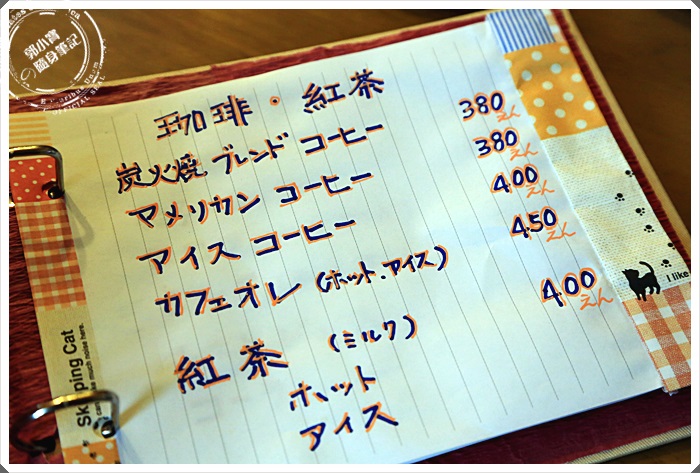 郭小寶
の隨身筆記
OFFICIAL SEAL
珈琲・紅茶
炭火焼ブレンドコーヒー 380えん
アメリカンコーヒー 380えん
アイスコーヒー 400えん
カフェオレ(ホット・アイス) 450えん
紅茶 (ミルク) 400えん
ホット
アイス
Skipping Cat
I like